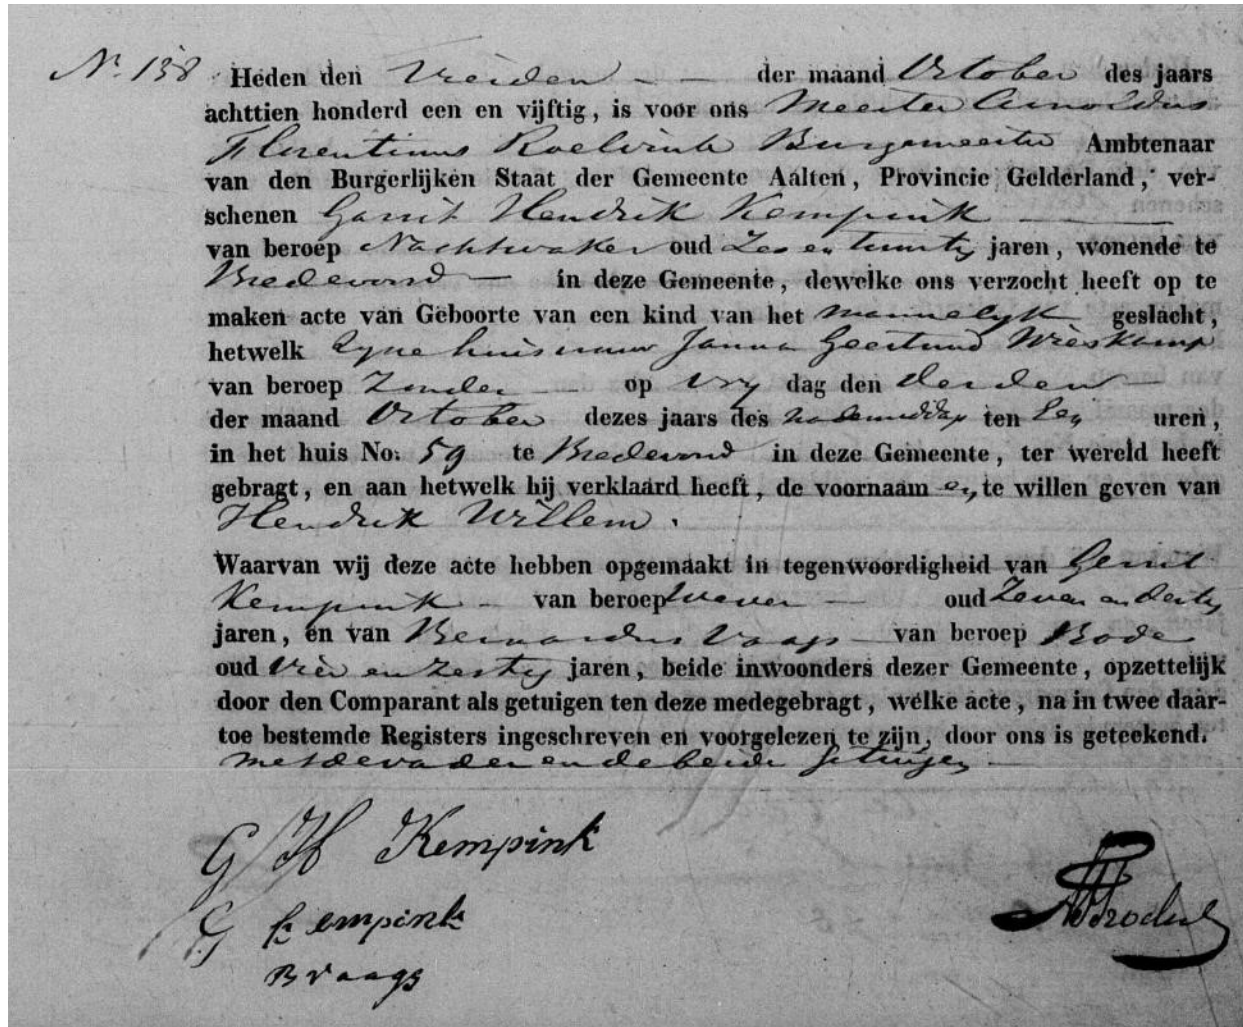 No. 138 Heden den Vierden der maand October des jaars
achttien honderd een en vijftig, is voor ons Meester Arnoldus
Florentinus Roelvink Burgemeester Ambtenaar
van den Burgerlijken Staat der Gemeente Aalten, Provincie Gelderland, ver-
schenen Garrit Hendrik Kempink
van beroep Nachtwaker oud Zes en twintig jaren, wonende te
Bredevoord in deze Gemeente, dewelke ons verzocht heeft op te
maken acte van Geboorte van een kind van het mannelyk geslacht,
hetwelk zyne huisvrouw Janna Geertruid Wieskamp
van beroep Zonder op Vry dag den derden
der maand October dezes jaars des nademiddag ten een uren,
in het huis No: 59 te Bredevoord in deze Gemeente, ter wereld heeft
gebragt, en aan hetwelk hij verklaard heeft, de voornaam en te willen geven van
Hendrik Willem.
Waarvan wij deze acte hebben opgemaakt in tegenwoordigheid van Gerrit
Kempink van beroep wever oud Zeven en dertig
jaren, en van Bernardus Vaags van beroep Bode
oud vier en zestig jaren, beide inwoonders dezer Gemeente, opzettelijk
door den Comparant als getuigen ten deze medegebragt, welke acte, na in twee daar-
toe bestemde Registers ingeschreven en voorgelezen te zijn, door ons is geteekend.
met de vader en de beide getuigen
G H Kempink
G Kempink
B Vaags